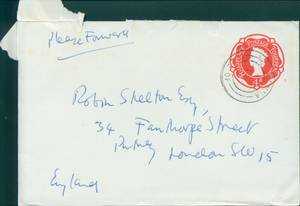 Please Forward
Robin Skelton Esq,
34 Fanthorpe Street
Putney London SW15
England